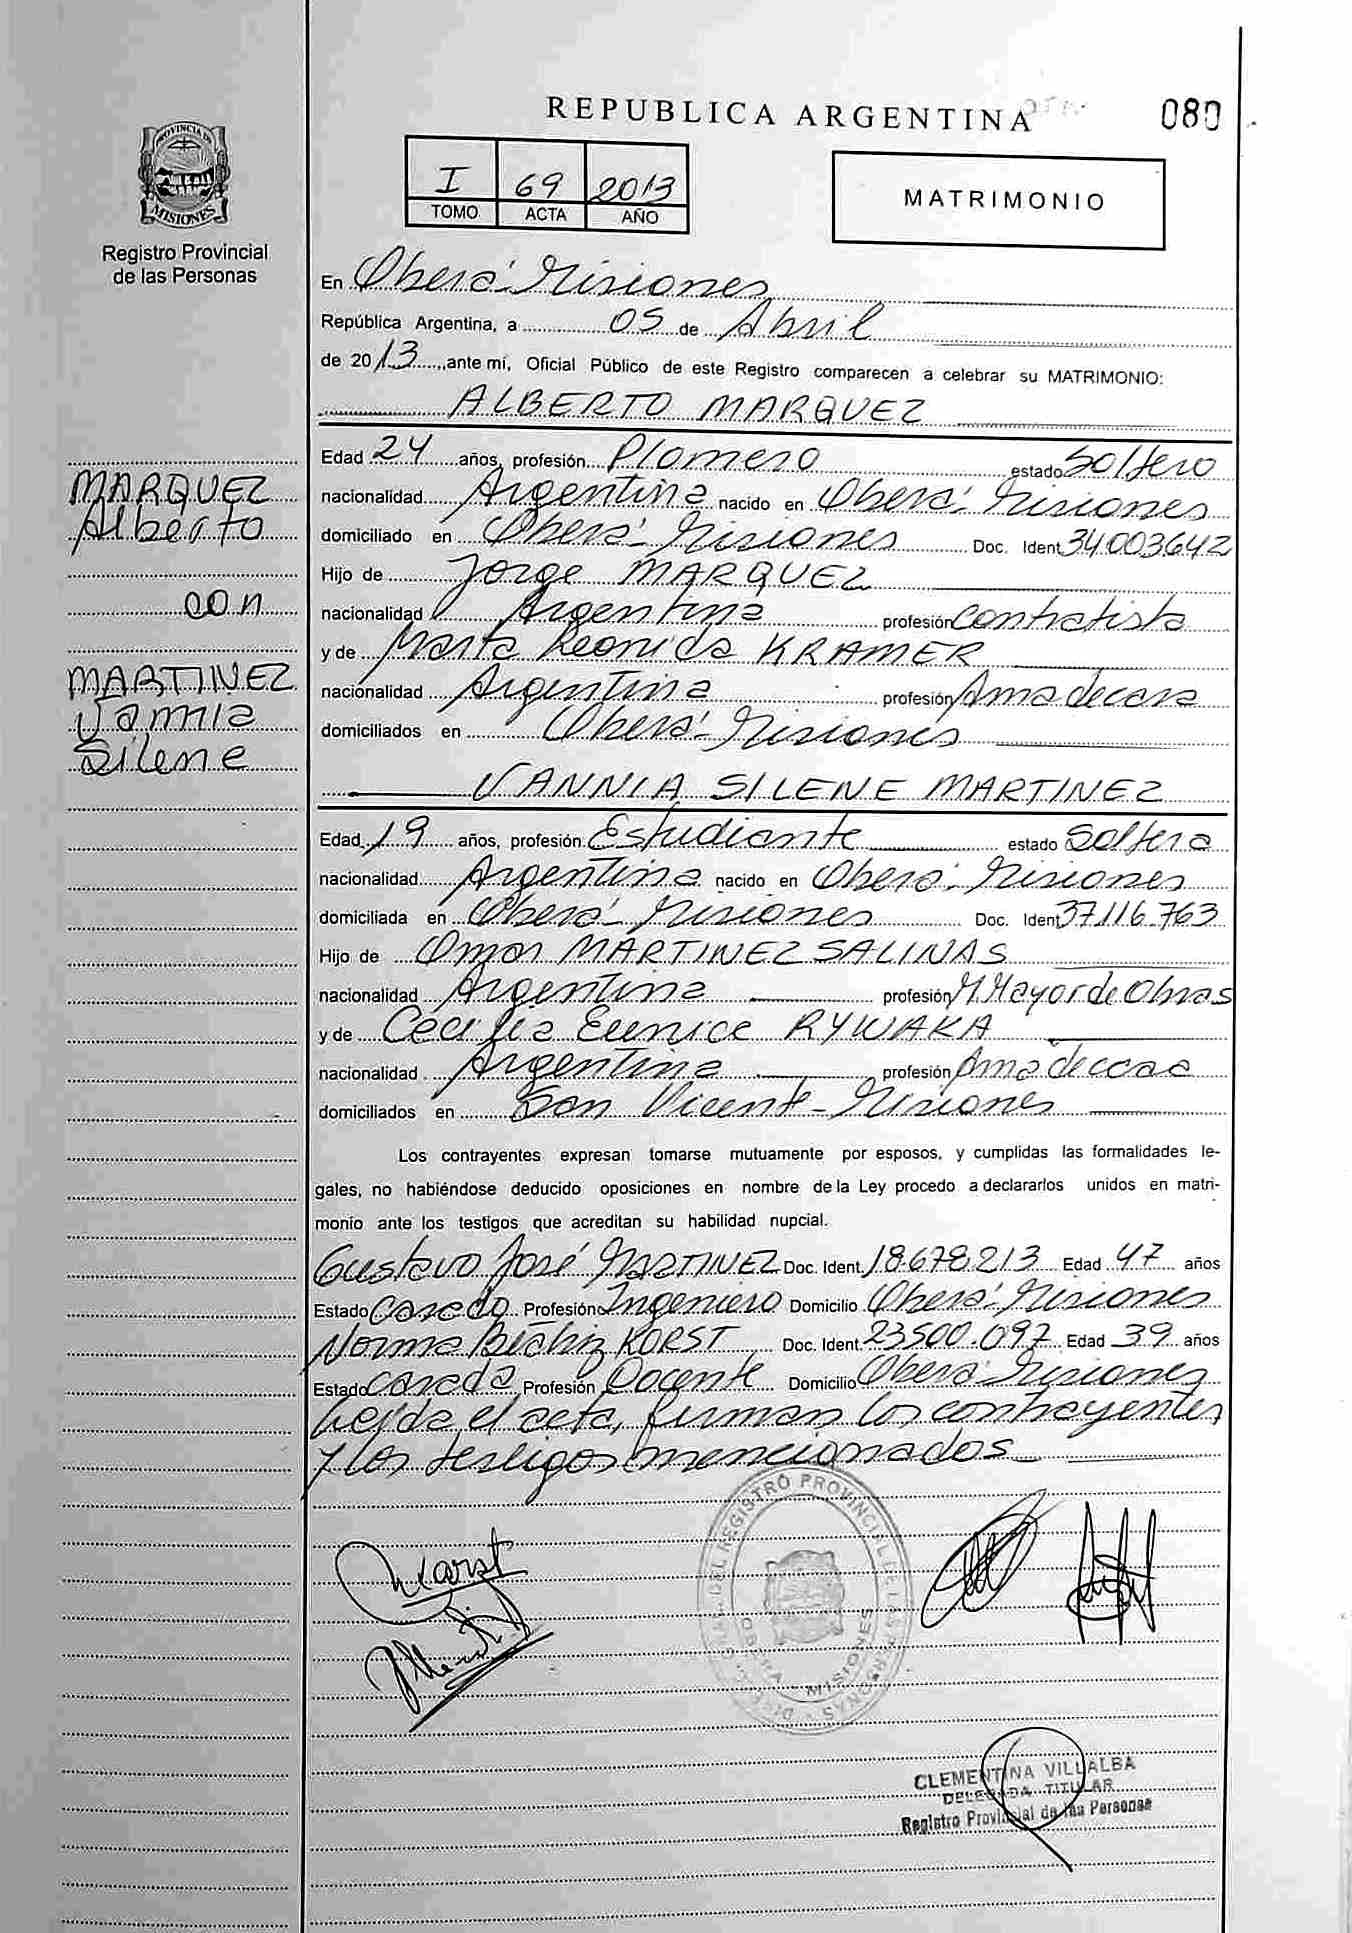 REPUBLICA ARGENTINA
080
PROVINCIA DE
MISIONES
Registro Provincial
de las Personas
I 69 2013
TOMO ACTA AÑO
MATRIMONIO
En Oberá - Misiones
República Argentina, a 05 de Abril
de 2013, ante mí, Oficial Público de este Registro comparecen a celebrar su MATRIMONIO:
ALBERTO MARQUEZ
Edad 24 años, profesión Plomero estado Soltero
nacionalidad Argentina nacido en Oberá - Misiones
domiciliado en Oberá - Misiones Doc. Ident 34003642
Hijo de Jorge MARQUEZ
nacionalidad Argentina profesión contratista
y de Marta Leonida KRAMER
nacionalidad Argentina profesión Ama de casa
domiciliados en Oberá - Misiones
VANNIA SILENE MARTINEZ
MARQUEZ
Alberto
con
MARTINEZ
Vannia
Silene
Edad 19 años, profesión Estudiante estado Soltera
nacionalidad Argentina nacido en Oberá - Misiones
domiciliada en Oberá - Misiones Doc. Ident 37.116.763
Hijo de Omar MARTINEZ SALINAS
nacionalidad Argentina profesión M. Mayor de Obras
y de Cecilia Eunice RYWAKA
nacionalidad Argentina profesión Ama de casa
domiciliados en San Vicente - Misiones
Los contrayentes expresan tomarse mutuamente por esposos, y cumplidas las formalidades le-
gales, no habiéndose deducido oposiciones en nombre de la Ley procedo a declararlos unidos en matri-
monio ante los testigos que acreditan su habilidad nupcial.
Gustavo José MARTINEZ Doc. Ident. 18.678.213 Edad 47 años
Estado Casado Profesión Ingeniero Domicilio Oberá - Misiones
Norma Beatriz KORST Doc. Ident. 23500.097 Edad 39 años
Estado Casada Profesión Docente Domicilio Oberá - Misiones
Leída el acta, firman los contrayentes
y los testigos mencionados
REGISTRO PROVINCIAL DE LAS PERSONAS
OBERA - MISIONES
CLEMENTINA VILLALBA
DELEGADA TITULAR
Registro Provincial de las Personas